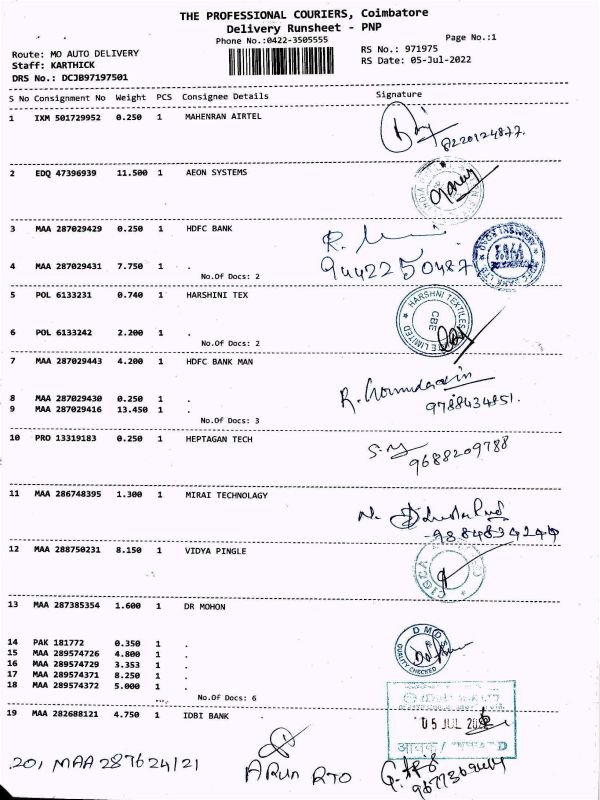 THE PROFESSIONAL COURIERS, Coimbatore
Delivery Runsheet - PNP
Phone No.:0422-3505555
Page No.:1
Route: MO AUTO DELIVERY
RS No.: 971975
Staff: KARTHICK
RS Date: 05-Jul-2022
DRS No.: DCJB97197501
S No Consignment No Weight PCS Consignee Details Signature
1 IXM 501729952 0.250 1 MAHENRAN AIRTEL
8220124877.
2 EDQ 47396939 11.500 1 AEON SYSTEMS
3 MAA 287029429 0.250 1 HDFC BANK
4 MAA 287029431 7.750 1 .
9442250487
No.Of Docs: 2
5 POL 6133231 0.740 1 HARSHINI TEX
HARSHNI TEXTILES
CBE
LIMITED
6 POL 6133242 2.200 1 .
No.Of Docs: 2
7 MAA 287029443 4.200 1 HDFC BANK MAN
8 MAA 287029430 0.250 1 .
9 MAA 287029416 13.450 1 .
9788434851.
No.Of Docs: 3
10 PRO 13319183 0.250 1 HEPTAGAN TECH
9688209788
11 MAA 286748395 1.300 1 MIRAI TECHNOLAGY
12 MAA 288750231 8.150 1 VIDYA PINGLE
13 MAA 287385354 1.600 1 DR MOHON
DMDS
QUALITY CHECKED
14 PAK 181772 0.350 1 .
15 MAA 289574726 4.800 1 .
16 MAA 289574729 3.353 1 .
17 MAA 289574371 8.250 1 .
18 MAA 289574372 5.000 1 .
No.Of Docs: 6
19 MAA 282688121 4.750 1 IDBI BANK
05 JUL
आवक
20, MAA 287624121
ARUN RTO